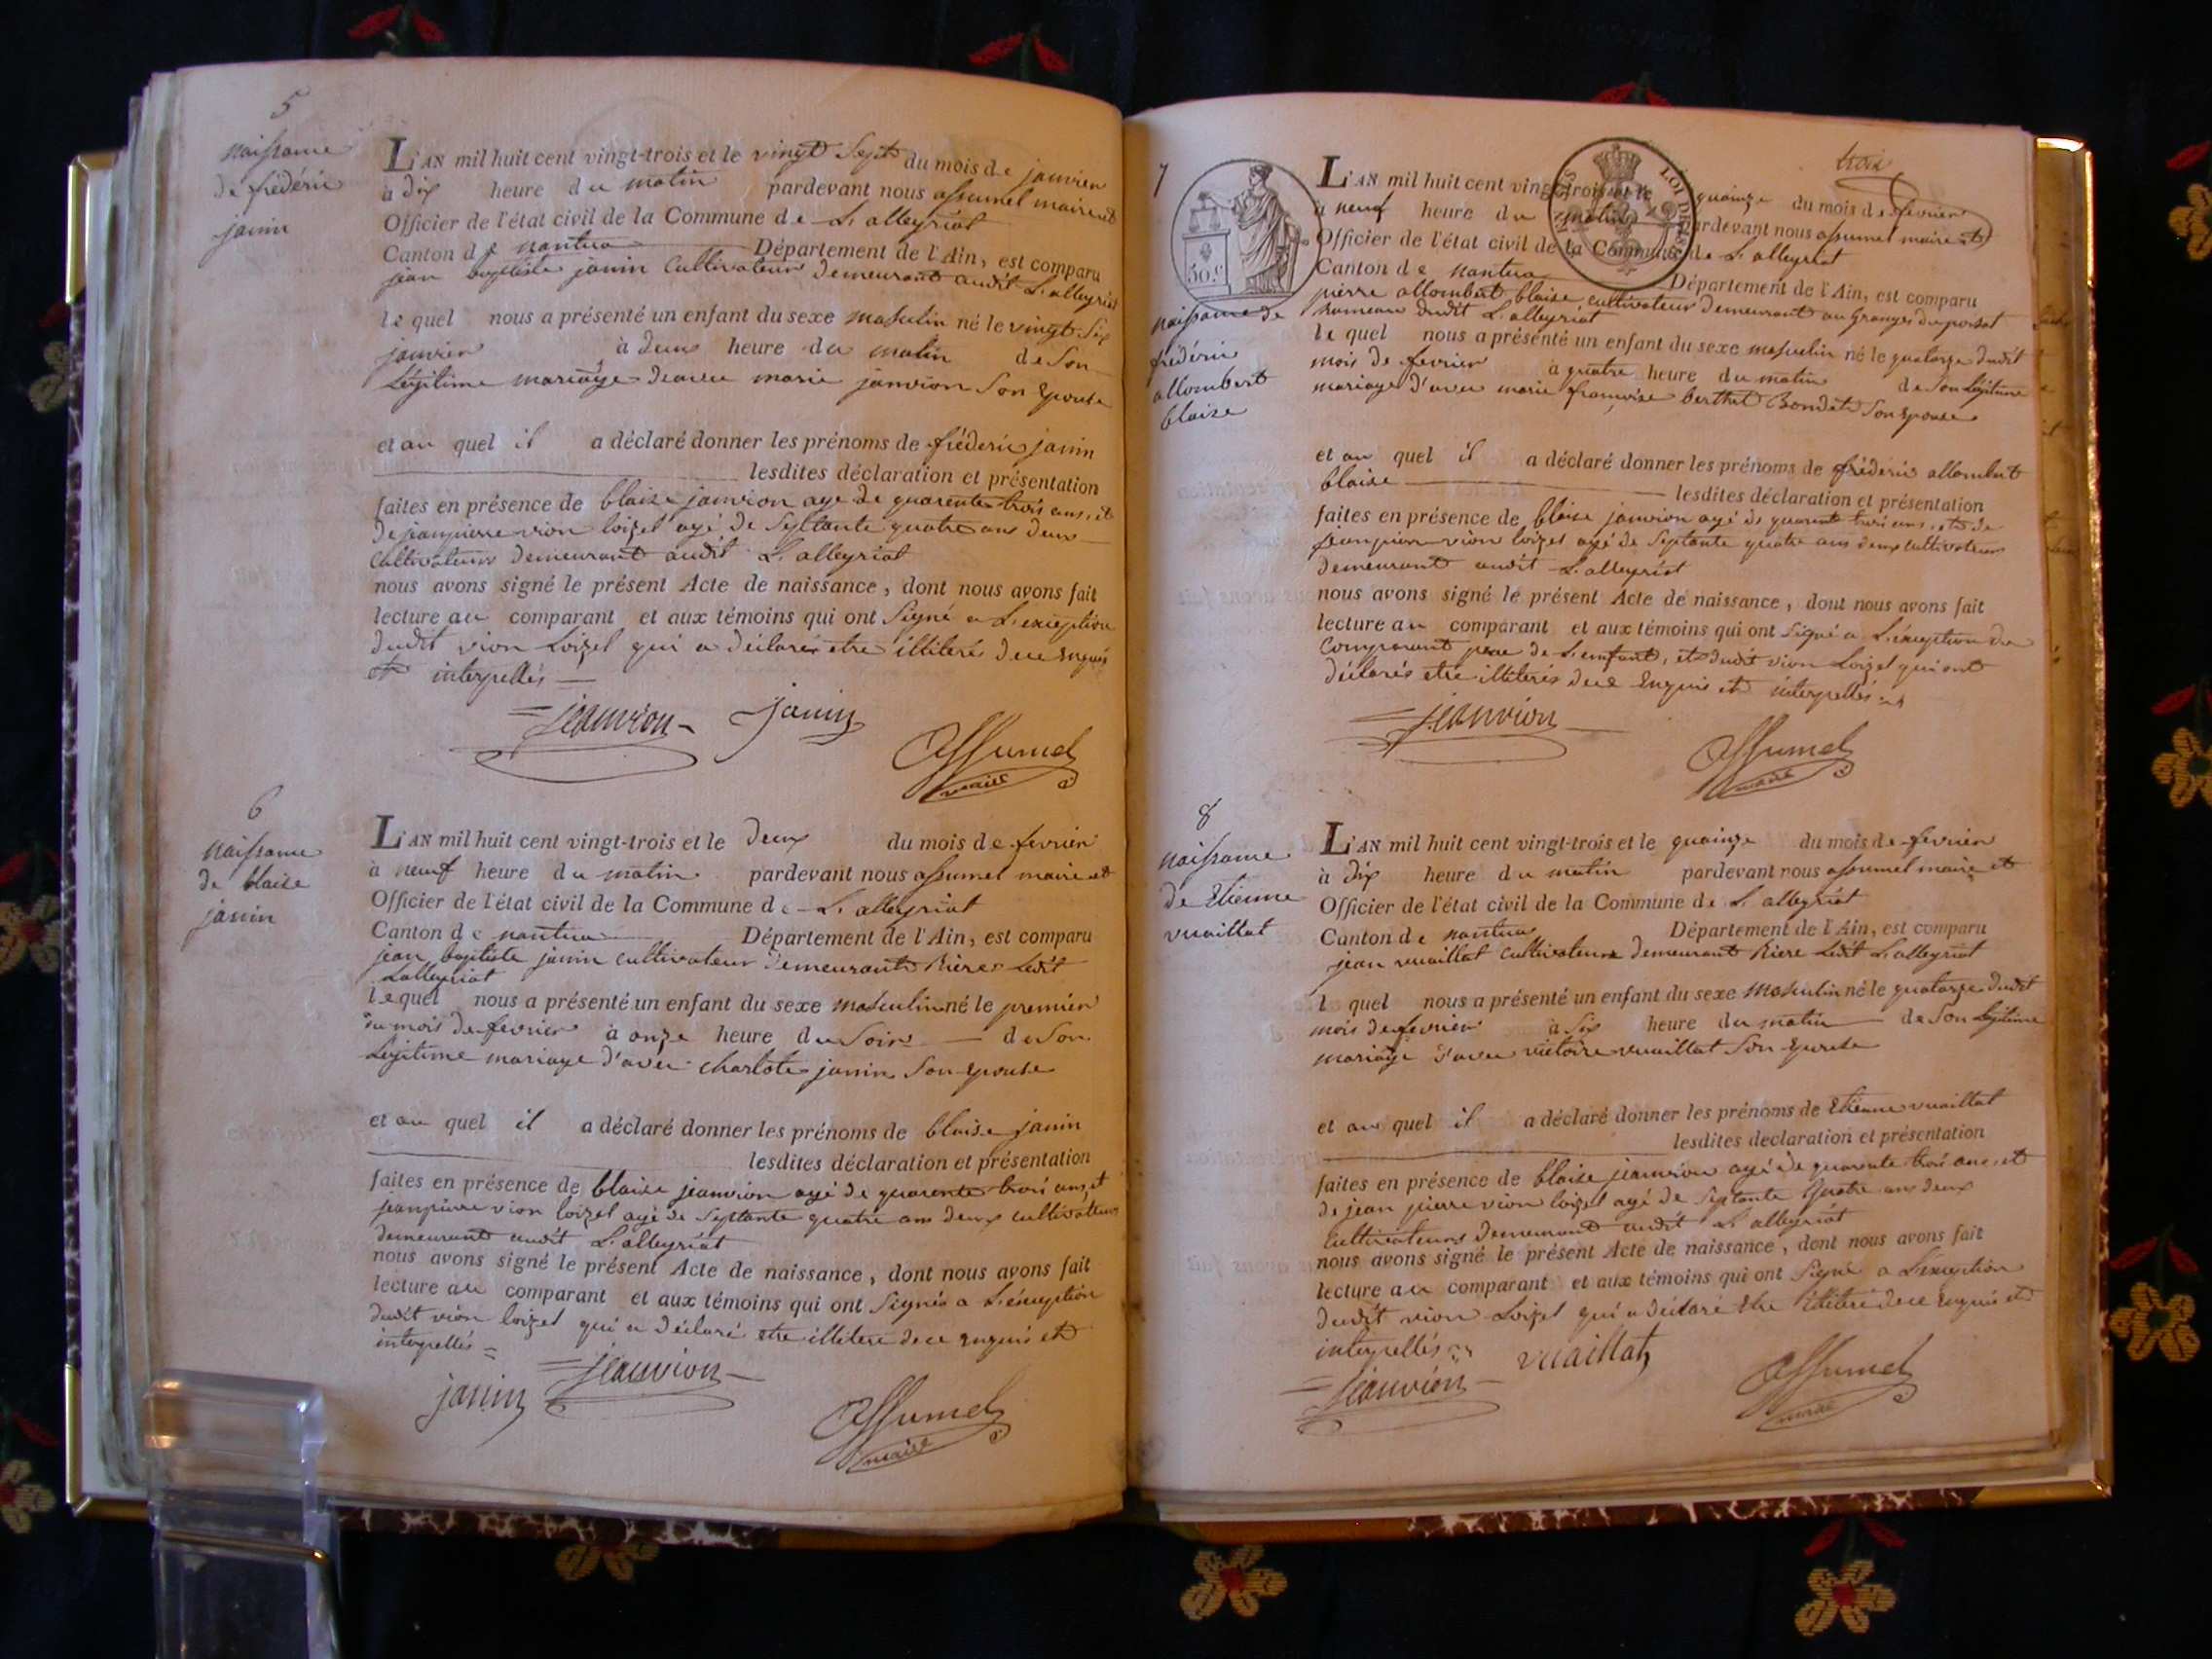 5
naissance
de fréderic
janin
L'AN mil huit cent vingt-trois et le vingt Sept du mois de janvier
à dix heure du matin pardevant nous assumel maire et
Officier de l'état civil de la Commune de L'alleyriat
Canton de nantua Département de l'Ain, est comparu
jean baptiste janin Cultivateur demeurant audit L'alleyriat
lequel nous a présenté un enfant du sexe masculin né le vingt Six
janvier à deux heure du matin de Son
Légitime mariage davec marie janvion Son Epouse
et au quel il a déclaré donner les prénoms de fréderic janin
lesdites déclaration et présentation
faites en présence de blaise janvion agé de quarente trois ans, et
de jeanpierre vion loizel agé de Septante quatre ans deux
Cultivateurs demeurant audit L'alleyriat
nous avons signé le présent Acte de naissance, dont nous avons fait
lecture au comparant et aux témoins qui ont Signé a L'exception
dudit vion Loizel qui a déclaré etre illiteré dece Enquis
et interpellés
jeanvion janin
Assumel
maire
6
naissance
de blaise
janin
L'AN mil huit cent vingt-trois et le deux du mois de fevrier
à neuf heure du matin pardevant nous assumel maire et
Officier de l'état civil de la Commune de L'alleyriat
Canton de nantua Département de l'Ain, est comparu
jean baptiste janin cultivateur demeurant Riere Ledit
Lalleyriat
lequel nous a présenté un enfant du sexe masculin né le premier
du mois de fevrier à onze heure du Soir de Son
Légitime mariage d'avec charlote janin Son Epouse
et au quel il a déclaré donner les prénoms de blaise janin
lesdites déclaration et présentation
faites en présence de blaise jeanvion agé de quarente trois ans, et
jeanpierre vion loizel agé de Septante quatre ans deux cultivateurs
demeurant audit L'alleyriat
nous avons signé le présent Acte de naissance, dont nous avons fait
lecture au comparant et aux témoins qui ont Signés a L'éxception
dudit vion loizel qui a déclaré etre illitere dece Enquis et
interpellés
janin jeanvion
Assumel
maire
trois
7
50.c
LOI DE
naissance de
fréderic
allombert
blaise
L'AN mil huit cent vingt-trois et le quainze du mois de fevrier
à neuf heure du matin pardevant nous assumel maire et
Officier de l'état civil de la Commune de L'alleyriat
Canton de nantua Département de l'Ain, est comparu
pierre allombert blaise cultivateur demeurant au Granges du poisat
hameau dudit L'alleyriat
lequel nous a présenté un enfant du sexe masculin né le quatorze dudit
mois de fevrier à quatre heure du matin de Son Légitime
mariage d'avec marie françoise berthet Bondet Son Epouse
et au quel il a déclaré donner les prénoms de fréderic allombert
blaise lesdites déclaration et présentation
faites en présence de blaise janvion agé de quarente trois ans, et de
jeanpierre vion loizel agé de Septante quatre ans deux cultivateurs
demeurant audit L'alleyriat
nous avons signé le présent Acte de naissance, dont nous avons fait
lecture au comparant et aux témoins qui ont Signé a L'éxception du
Comparant pere de L'enfant, et dudit vion Loizel qui ont
déclarés etre illiterés dece Enquis et interpellés
jeanvion
Assumel
maire
8
naissance
de Etienne
vuaillat
L'AN mil huit cent vingt-trois et le quainze du mois de fevrier
à dix heure du matin pardevant nous assumel maire et
Officier de l'état civil de la Commune de L'alleyriat
Canton de nantua Département de l'Ain, est comparu
jean vuaillat Cultivateur demeurant Riere Ledit L'alleyriat
l quel nous a présenté un enfant du sexe Masculin né le quatorze dudit
mois de fevrier à Six heure du matin de Son Légitime
mariage d'avec victoire vuaillat Son Epouse
et au quel il a déclaré donner les prénoms de Etienne vuaillat
lesdites declaration et présentation
faites en présence de blaise jeanvion agé de quarente trois ans, et
de jean pierre vion loizel agé de Septante Quatre ans deux
Cultivateurs demeurant audit L'alleyriat
nous avons signé le présent Acte de naissance, dont nous avons fait
lecture au comparant et aux témoins qui ont Signé a L'éxception
dudit vion Loizel qui a déclaré Etre illiteré dece Enquis et
interpellés
jeanvion vuaillat
Assumel
maire